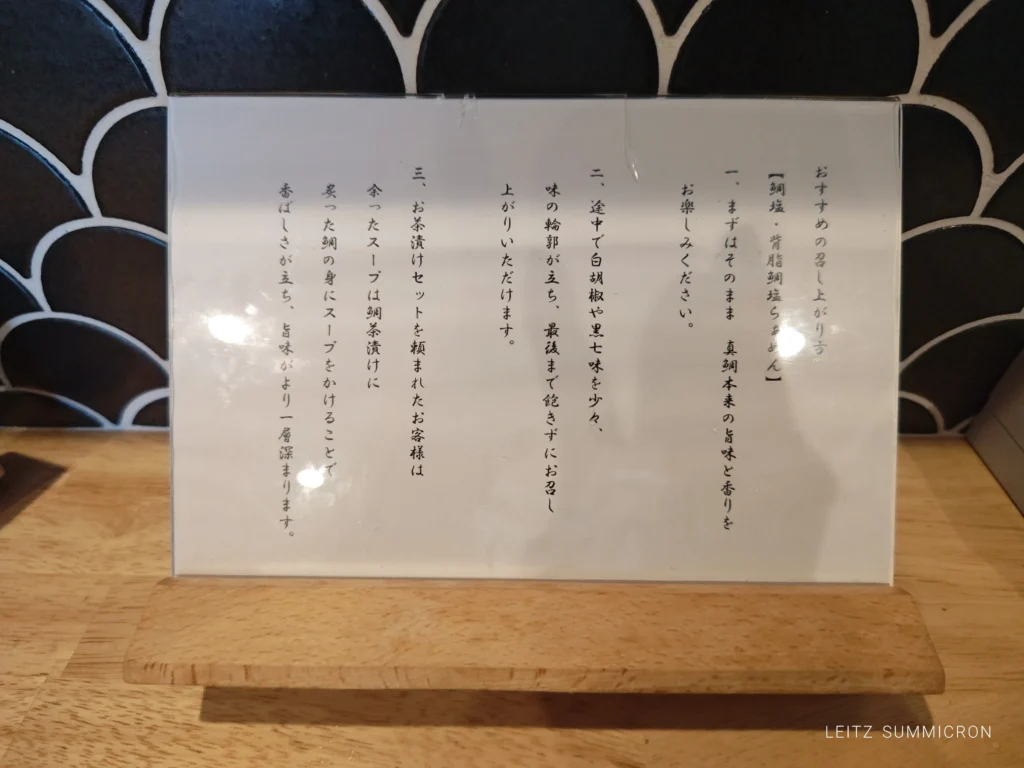 おすすめの召し上がり方
【鯛塩・背脂鯛塩らぁめん】
一、まずはそのまま　真鯛本来の旨味と香りを
お楽しみください。
二、途中で白胡椒や黒七味を少々、
味の輪郭が立ち、最後まで飽きずにお召し
上がりいただけます。
三、お茶漬けセットを頼まれたお客様は
余ったスープは鯛茶漬けに
炙った鯛の身にスープをかけることで
香ばしさが立ち、旨味がより一層深まります。
LEITZ SUMMICRON